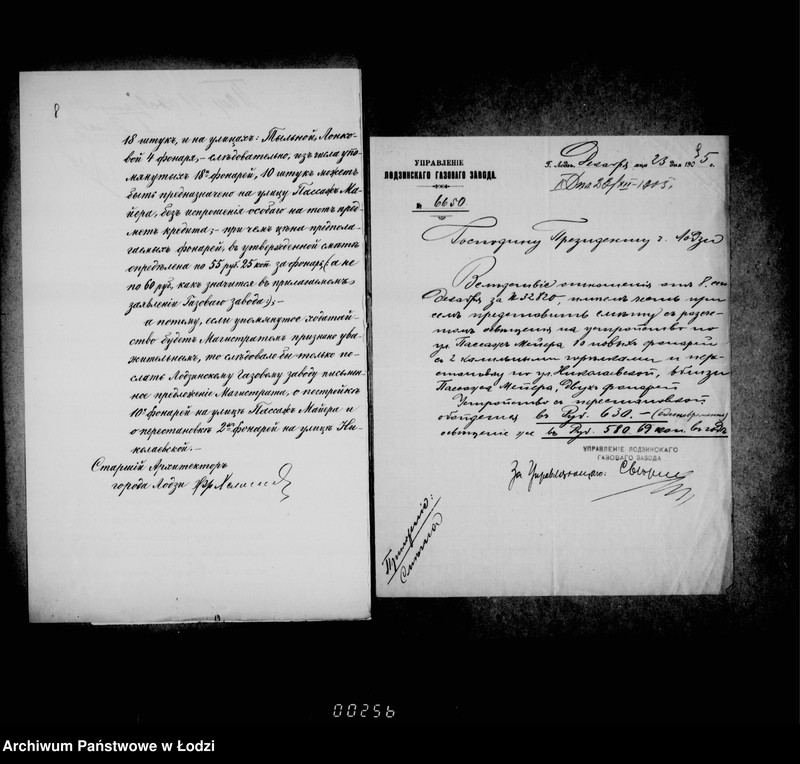 8
18 штукъ, и на улицахъ: Тыльной, Лонко-
вой 4 фонаря,- слѣдовательно, изъ числа упо-
мянутыхъ 18ти фонарей, 10 штукъ можетъ
быть предназначено на улицу Пассажъ Ма-
йера, безъ испрошенія особаго на тотъ пред-
метъ кредита;- при чемъ цѣна предпола-
гаемыхъ фонарей, въ утвержденной смѣтѣ
опредѣлена по 55 руб. 25 коп за фонарь, (а не
по 60 руб, какъ значится въ прилагаемомъ
заявленіи Газоваго завода);-
а потому, если упомянутое ходатай-
ство будетъ Магистратомъ признано ува-
жительнымъ, то слѣдовало бы только по-
слать Лодзинскому Газовому заводу письмен-
ное предложеніе Магистрата, о постройкѣ
10ти фонарей на улицѣ Пассажъ Майера и
о перестановкѣ 2хъ фонарей на улицѣ Ни-
колаевской.-
Старшій Архитекторъ
города Лодзи
УПРАВЛЕНІЕ
ЛОДЗИНСКАГО ГАЗОВАГО ЗАВОДА.
№ 6650
Г. Лодзь, Декабря 23 дня 1905 г.
Господину Президенту г. Лодзи
Вслѣдствіе отношенія отъ 8
Декабря за № 32820 имѣемъ честь при
семъ представить смѣту съ разсче-
томъ освѣщенія на устройство по
ул. Пассажъ Мейера 10 новыхъ фонарей
съ 2 калильными горѣлками и пере-
становку по ул. Николаевской, вблизи
Пассажа Мейера, двухъ фонарей
Устройство съ перестановкой
обойдется въ Руб. 630.- (единовременно)
освѣщеніе же въ Руб. 580 69 коп. въ годъ
УПРАВЛЕНІЕ ЛОДЗИНСКАГО
ГАЗОВАГО ЗАВОДА
За Управляющаго:
Приложеніе:
Смѣта
00256
Archiwum Państwowe w Łodzi